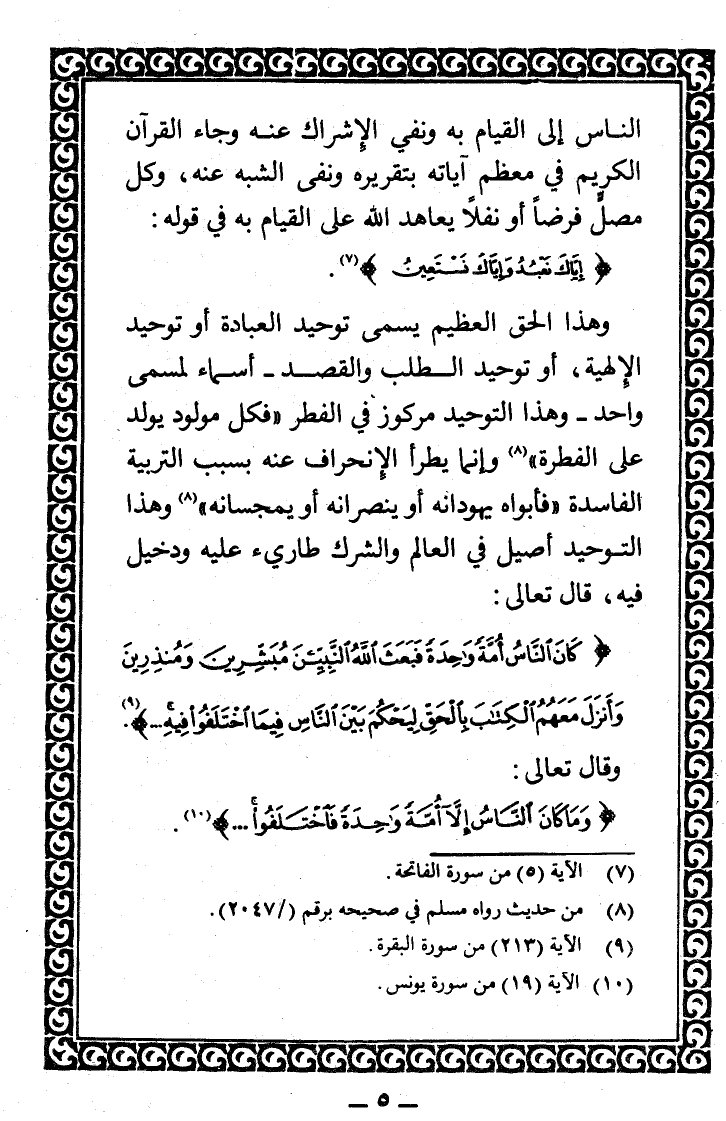 الناس إلى القيام به ونفي الإشراك عنه وجاء القرآن
الكريم في معظم آياته بتقريره ونفى الشبه عنه، وكل
مصلٍّ فرضاً أو نفلاً يعاهد الله على القيام به في قوله:
﴿ إِيَّاكَ نَعْبُدُ وَإِيَّاكَ نَسْتَعِينُ ﴾(٧).
وهذا الحق العظيم يسمى توحيد العبادة أو توحيد
الإلهية، أو توحيد الطلب والقصد ـ أسماء لمسمى
واحد ـ وهذا التوحيد مركوز في الفطر «فكل مولود يولد
على الفطرة»(٨) وإنما يطرأ الإنحراف عنه بسبب التربية
الفاسدة «فأبواه يهودانه أو ينصرانه أو يمجسانه»(٨) وهذا
التوحيد أصيل في العالم والشرك طاريء عليه ودخيل
فيه، قال تعالى:
﴿ كَانَ ٱلنَّاسُ أُمَّةً وَٰحِدَةً فَبَعَثَ ٱللَّهُ ٱلنَّبِيِّـۧنَ مُبَشِّرِينَ وَمُنذِرِينَ
وَأَنزَلَ مَعَهُمُ ٱلْكِتَٰبَ بِٱلْحَقِّ لِيَحْكُمَ بَيْنَ ٱلنَّاسِ فِيمَا ٱخْتَلَفُوا۟ فِيهِ ...﴾(٩).
وقال تعالى:
﴿ وَمَا كَانَ ٱلنَّاسُ إِلَّآ أُمَّةً وَٰحِدَةً فَٱخْتَلَفُوا۟ ...﴾(١٠).
(٧) الآية (٥) من سورة الفاتحة.
(٨) من حديث رواه مسلم في صحيحه برقم (/٢٠٤٧).
(٩) الآية (٢١٣) من سورة البقرة.
(١٠) الآية (١٩) من سورة يونس.
ـ ٥ ـ